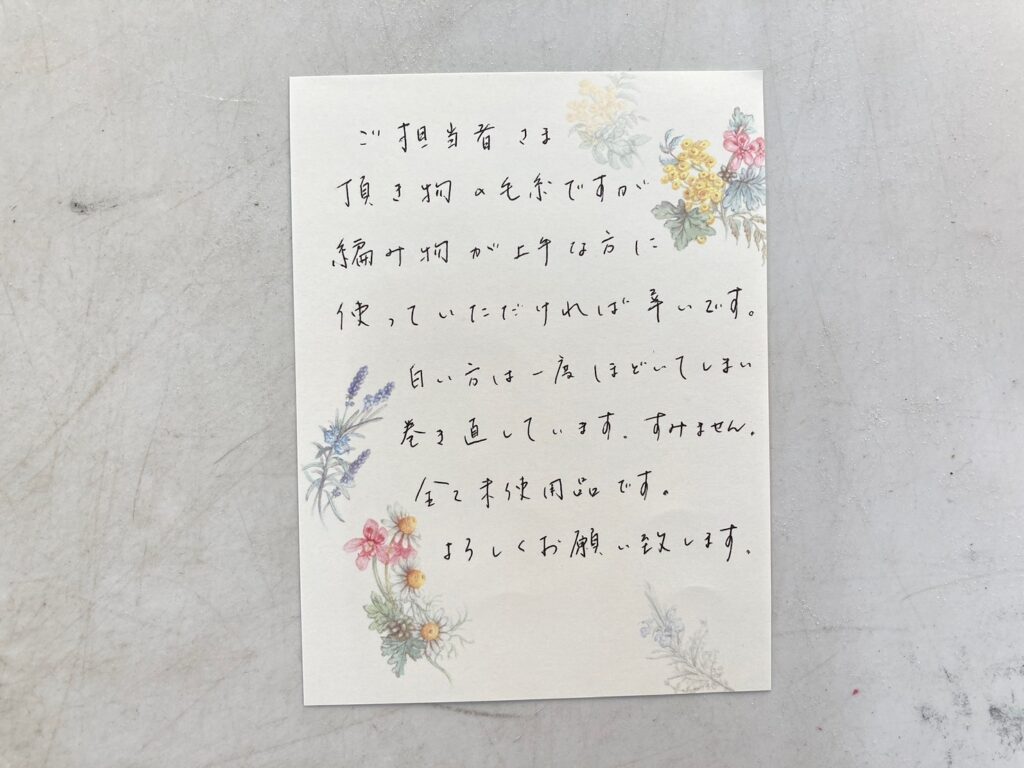 ご担当者さま
頂き物の毛糸ですが
編み物が上手な方に
使っていただければ幸いです。
白い方は一度ほどいてしまい
巻き直しています。すみません。
全て未使用品です。
よろしくお願い致します。